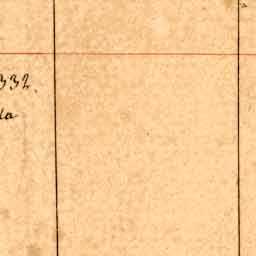 332.
la